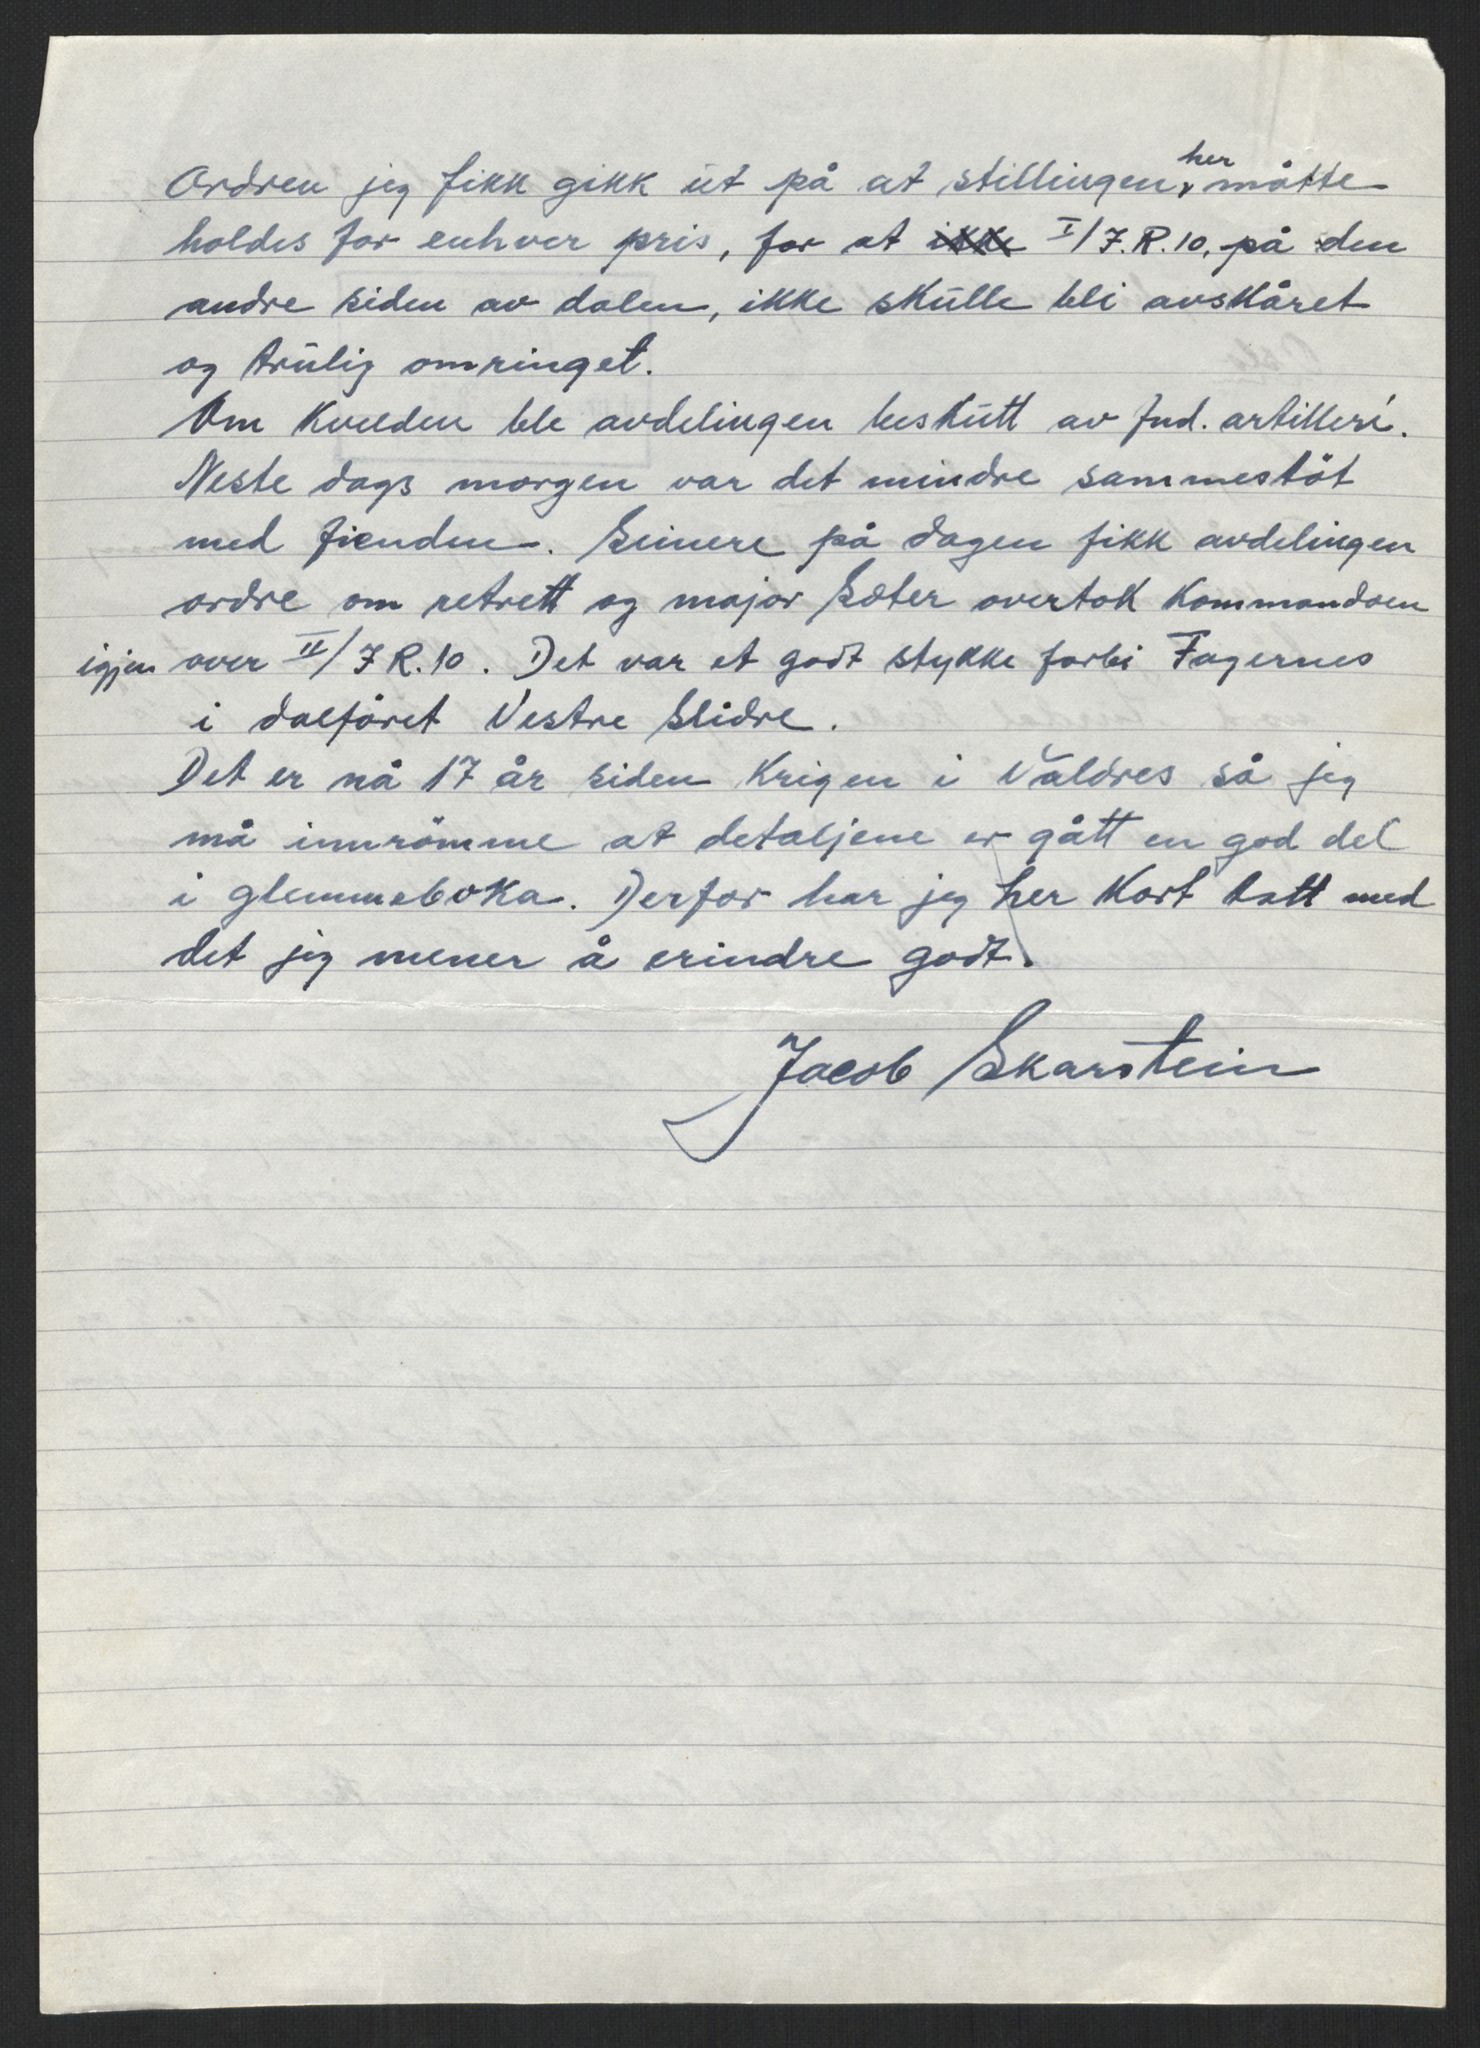 Ordren jeg fikk gikk ut på at stillingen her måtte
holdes for enhver pris, for at ikke I/J.R.10, på den
andre siden av dalen, ikke skulle bli avskåret
og trulig omringet.
Om kvelden ble avdelingen beskutt av fnd. artilleri.
Neste dags morgen var det mindre sammestöt
med fienden. Seinere på dagen fikk avdelingen
ordre om retrett og major Sæter overtok kommandoen
igjen over II/J R.10. Det var et godt stykke forbi Fagernes
i dalföret Vestre Slidre.
Det er nå 17 år siden krigen i Valdres så jeg
må innrömme at detaljene er gått en god del
i glemmeboka. Derfor har jeg her kort tatt med
det jeg mener å erindre godt.
Jacob Skarstein